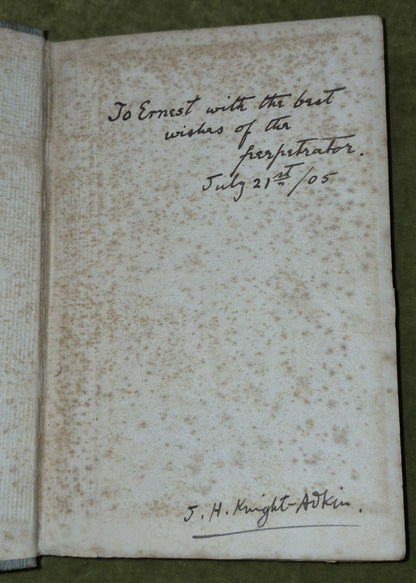 To Ernest with the best
wishes of the
perpetrator.
July 21st/05
J. H. Knight-Adkin.